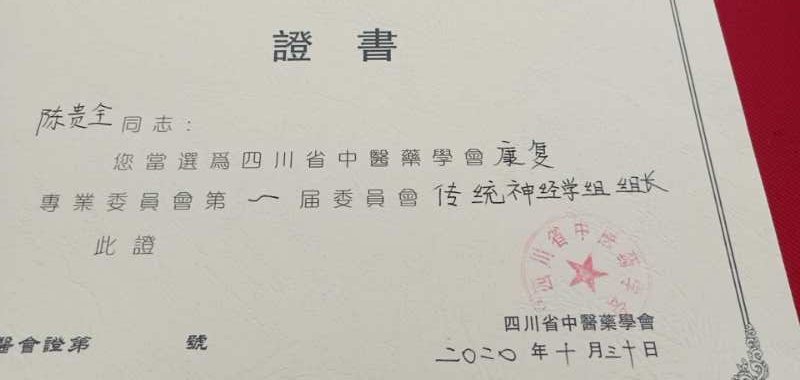 證書
陈贵全同志：
您當選爲四川省中醫藥學會康复
專業委員會第一届委員會传统神经学组组长
此證
四川省中醫藥學會
醫會證第 號
二〇二〇年十月三十日